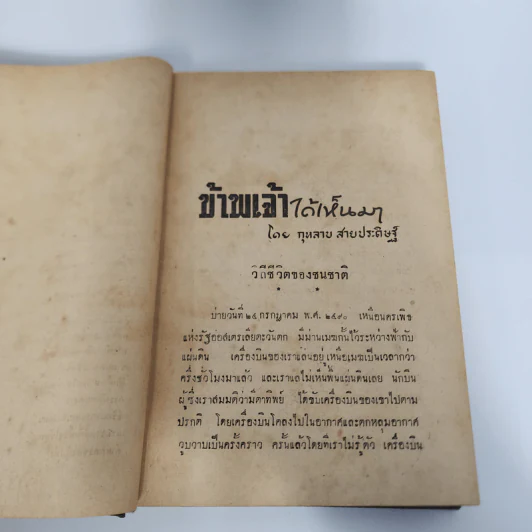 ข้าพเจ้าได้เห็นมา
โดย กุหลาบ สายประดิษฐ์
วิถีชีวิตของชนชาติ
บ่ายวันที่ ๒๔ กรกฎาคม พ.ศ. ๒๔๙๐ เหนือนครเพิซ
แห่งรัฐออสเตรเลียตะวันตก มีม่านเมฆกั้นไว้ระหว่างฟ้ากับ
แผ่นดิน เครื่องบินของเราแล่นอยู่เหนือเมฆเป็นเวลากว่า
ครึ่งชั่วโมงมาแล้ว และเราแลไม่เห็นพื้นแผ่นดินเลย นักบิน
ผู้ซึ่งเราสมมติว่ามีตาทิพย์ ได้ขับเครื่องบินของเขาไปตาม
ปรกติ โดยเครื่องบินโคลงไปในอากาศและตกหลุมอากาศ
วูบวาบเป็นครั้งคราว ครั้นแล้วโดยที่เราไม่รู้ตัว เครื่องบิน